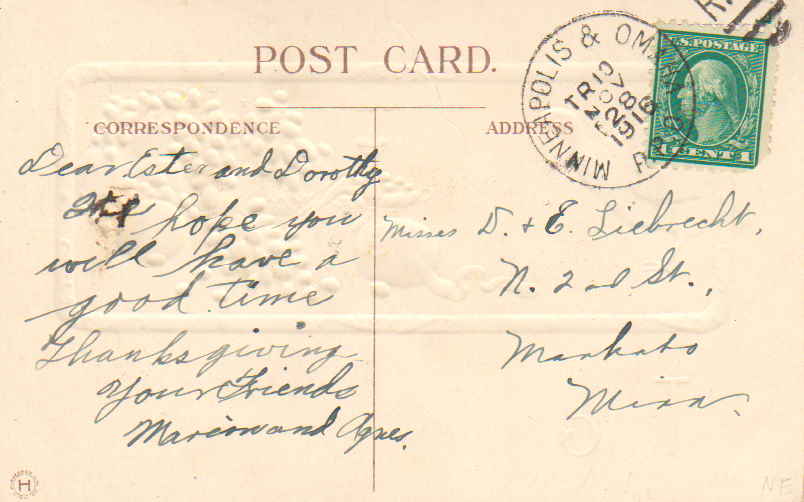 POST CARD.
CORRESPONDENCE
ADDRESS
MINNEAPOLIS & OMAHA
R.P.O.
TR 10
NOV
28
1916
U.S. POSTAGE
1 CENT 1
Dear Ester and Dorothy
hope you
will have a
good time
Thanksgiving
Your Friends
Marion and Agnes.
Misses D. & E. Liebrecht,
N. 2nd St.,
Mankato
Minn.
H
NE